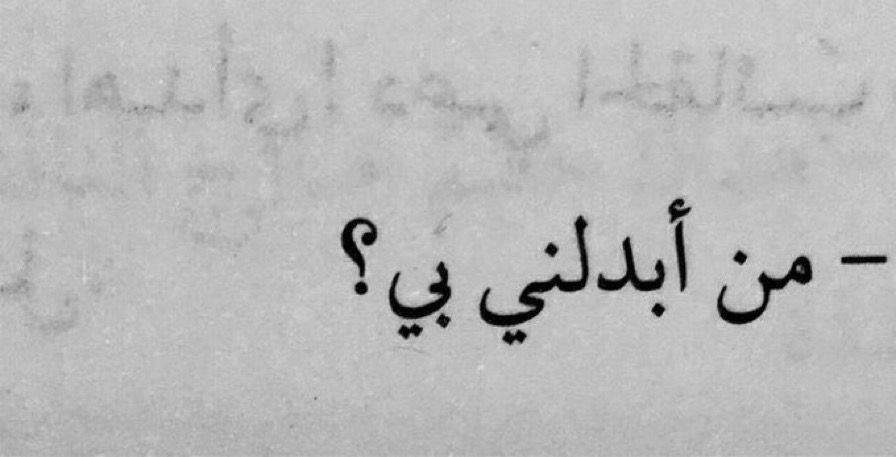 – من أبدلني بي؟